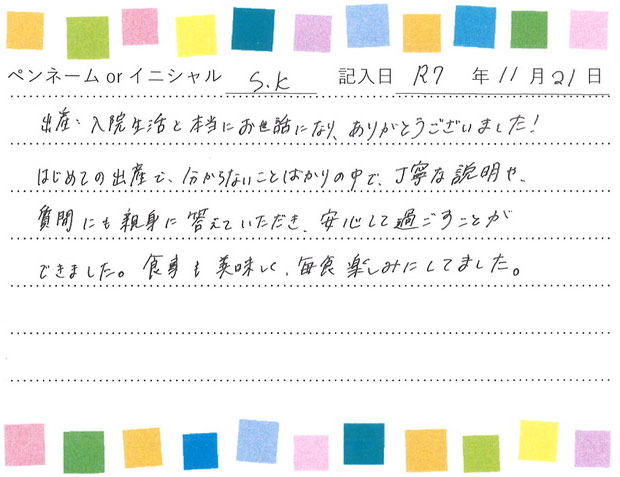 ペンネーム or イニシャル S.K 記入日 R7 年 11 月 21 日
出産、入院生活と本当にお世話になり、ありがとうございました!
はじめての出産で、分からないことばかりの中で、丁寧な説明や、
質問にも親身に答えていただき、安心して過ごすことが
できました。食事も美味しく、毎食楽しみにしてました。